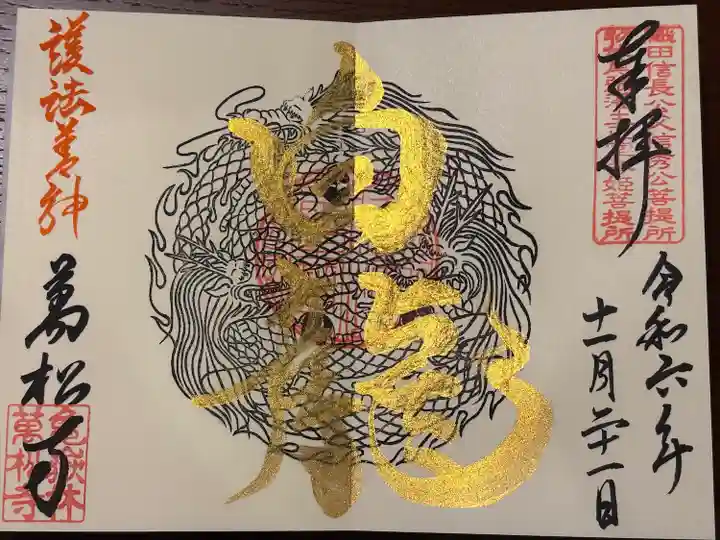 奉拝
織田信長公父信秀公菩提所
令和六年
十一月二十一日
白龍
護法善神
萬松寺
亀嶽林
萬松寺